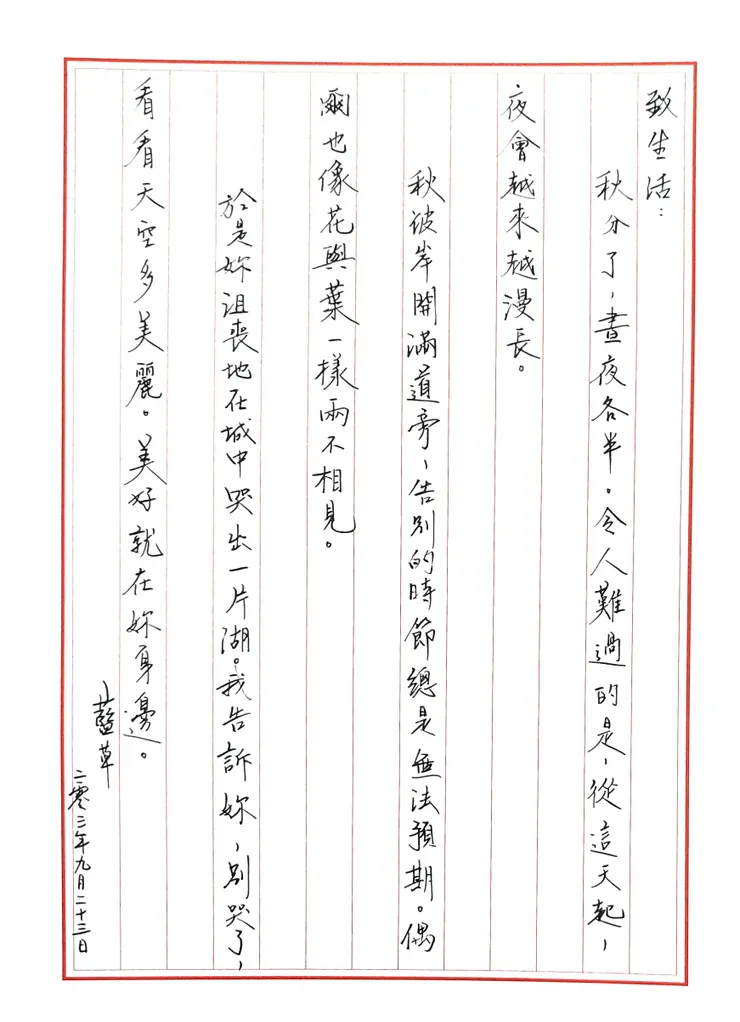 致生活：
秋分了，晝夜各半。令人難過的是，從這天起，
夜會越來越漫長。
秋彼岸開滿道旁，告別的時節總是無法預期。偶
爾也像花與葉一樣兩不相見。
於是妳沮喪地在城中哭出一片湖。我告訴妳，別哭了，
看看天空多美麗。美好就在妳身邊。
藍草
二零二三年九月二十三日